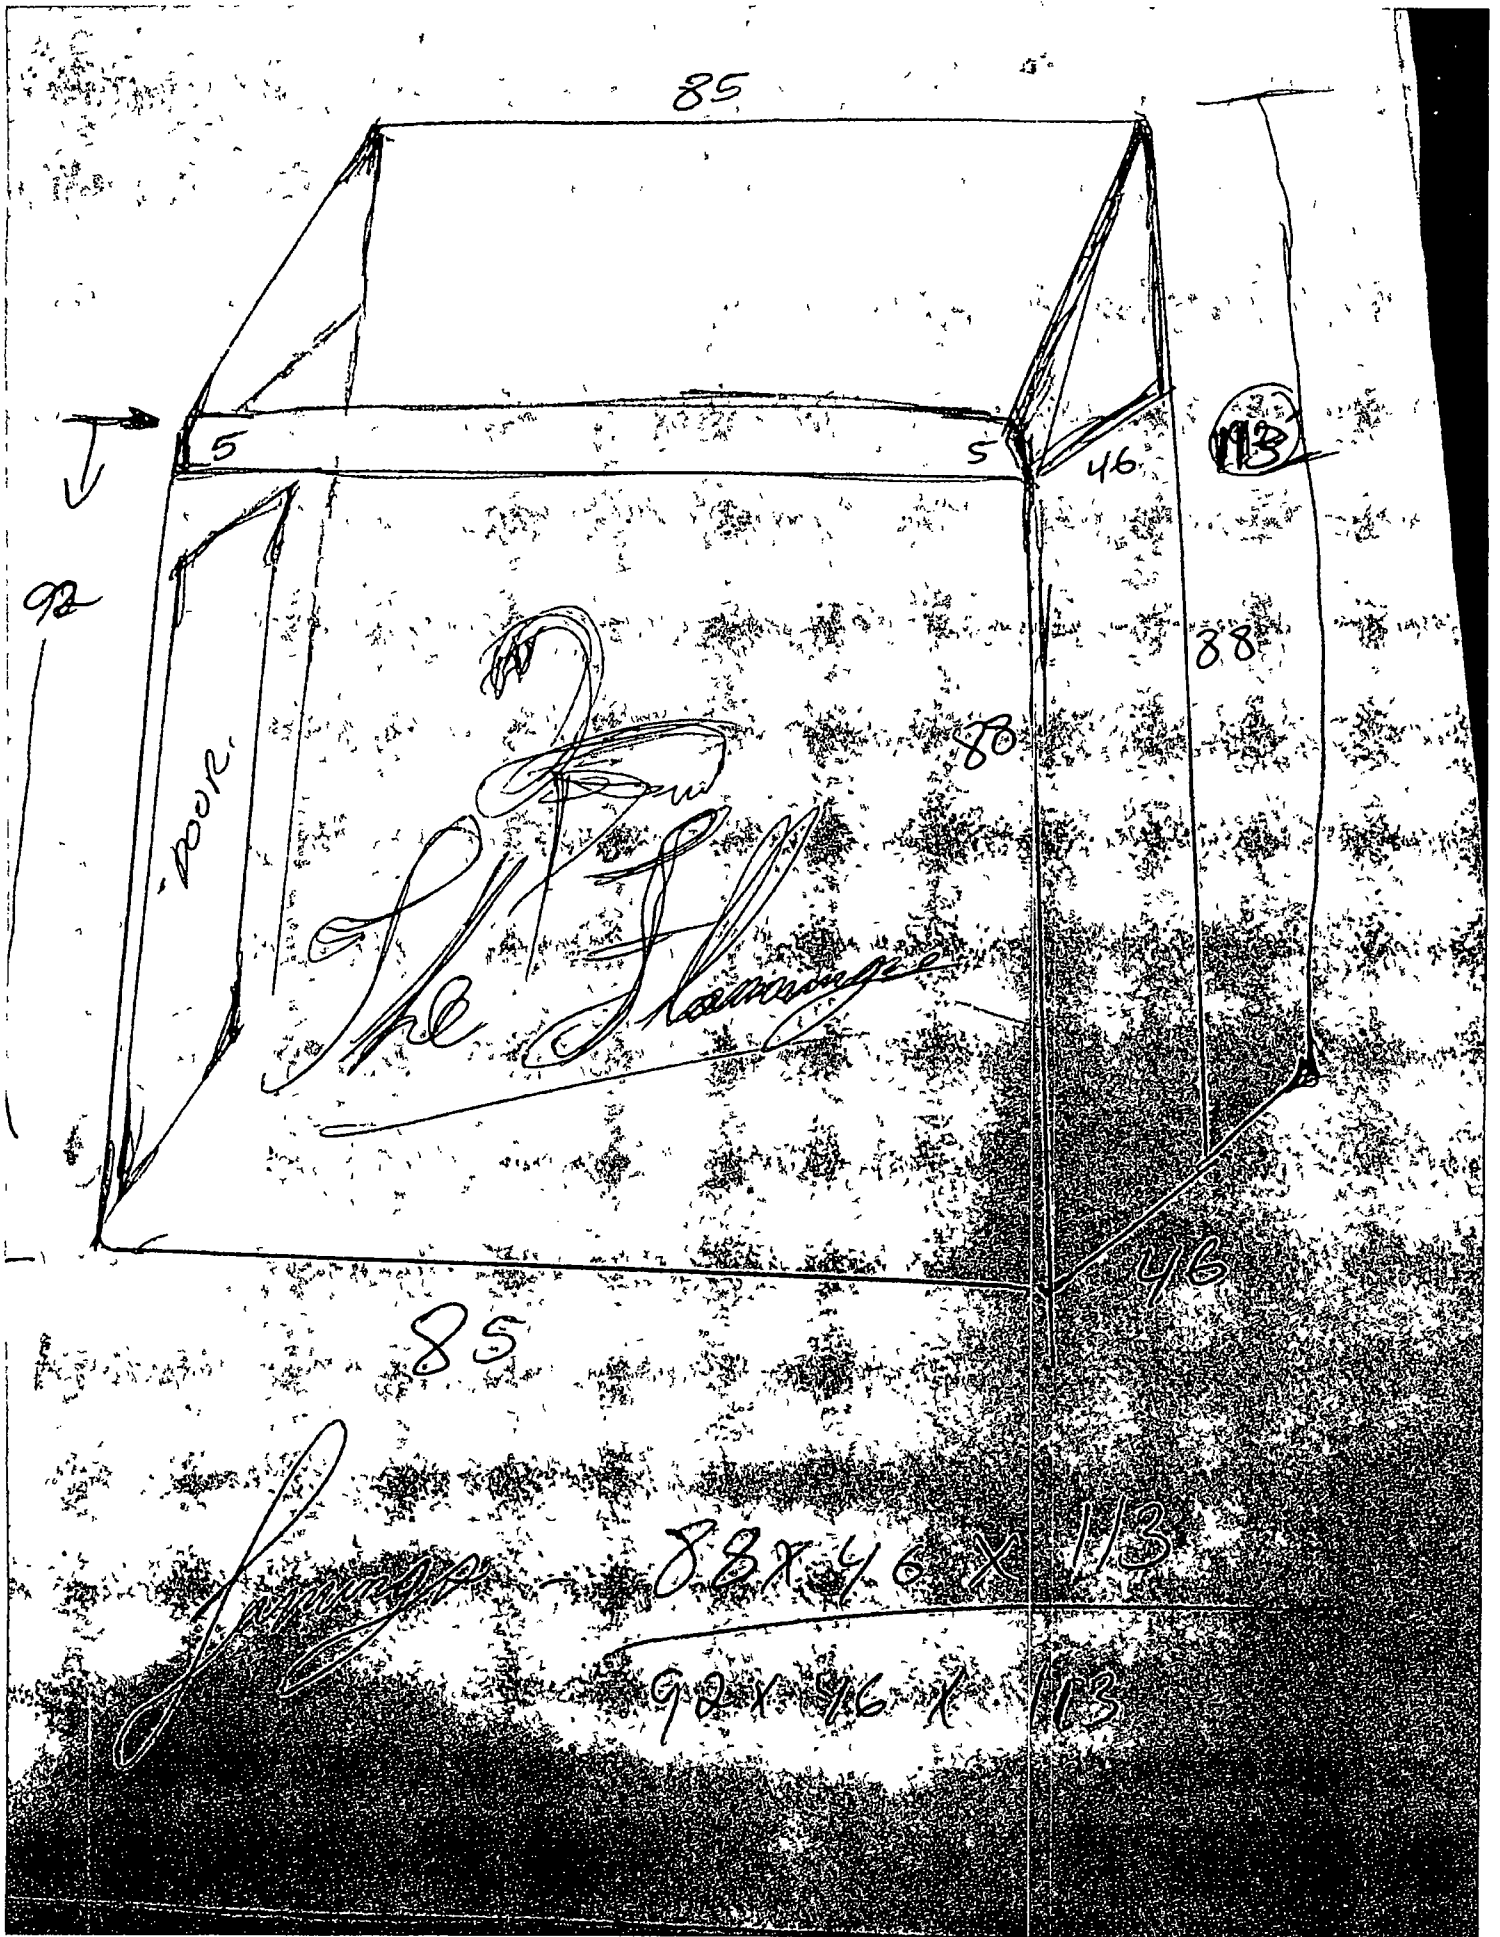 85
5
5
46
113
92
88
88
DOOR.
The Flamingo
46
85
88 X 46 X 113
92 X 46 X 113